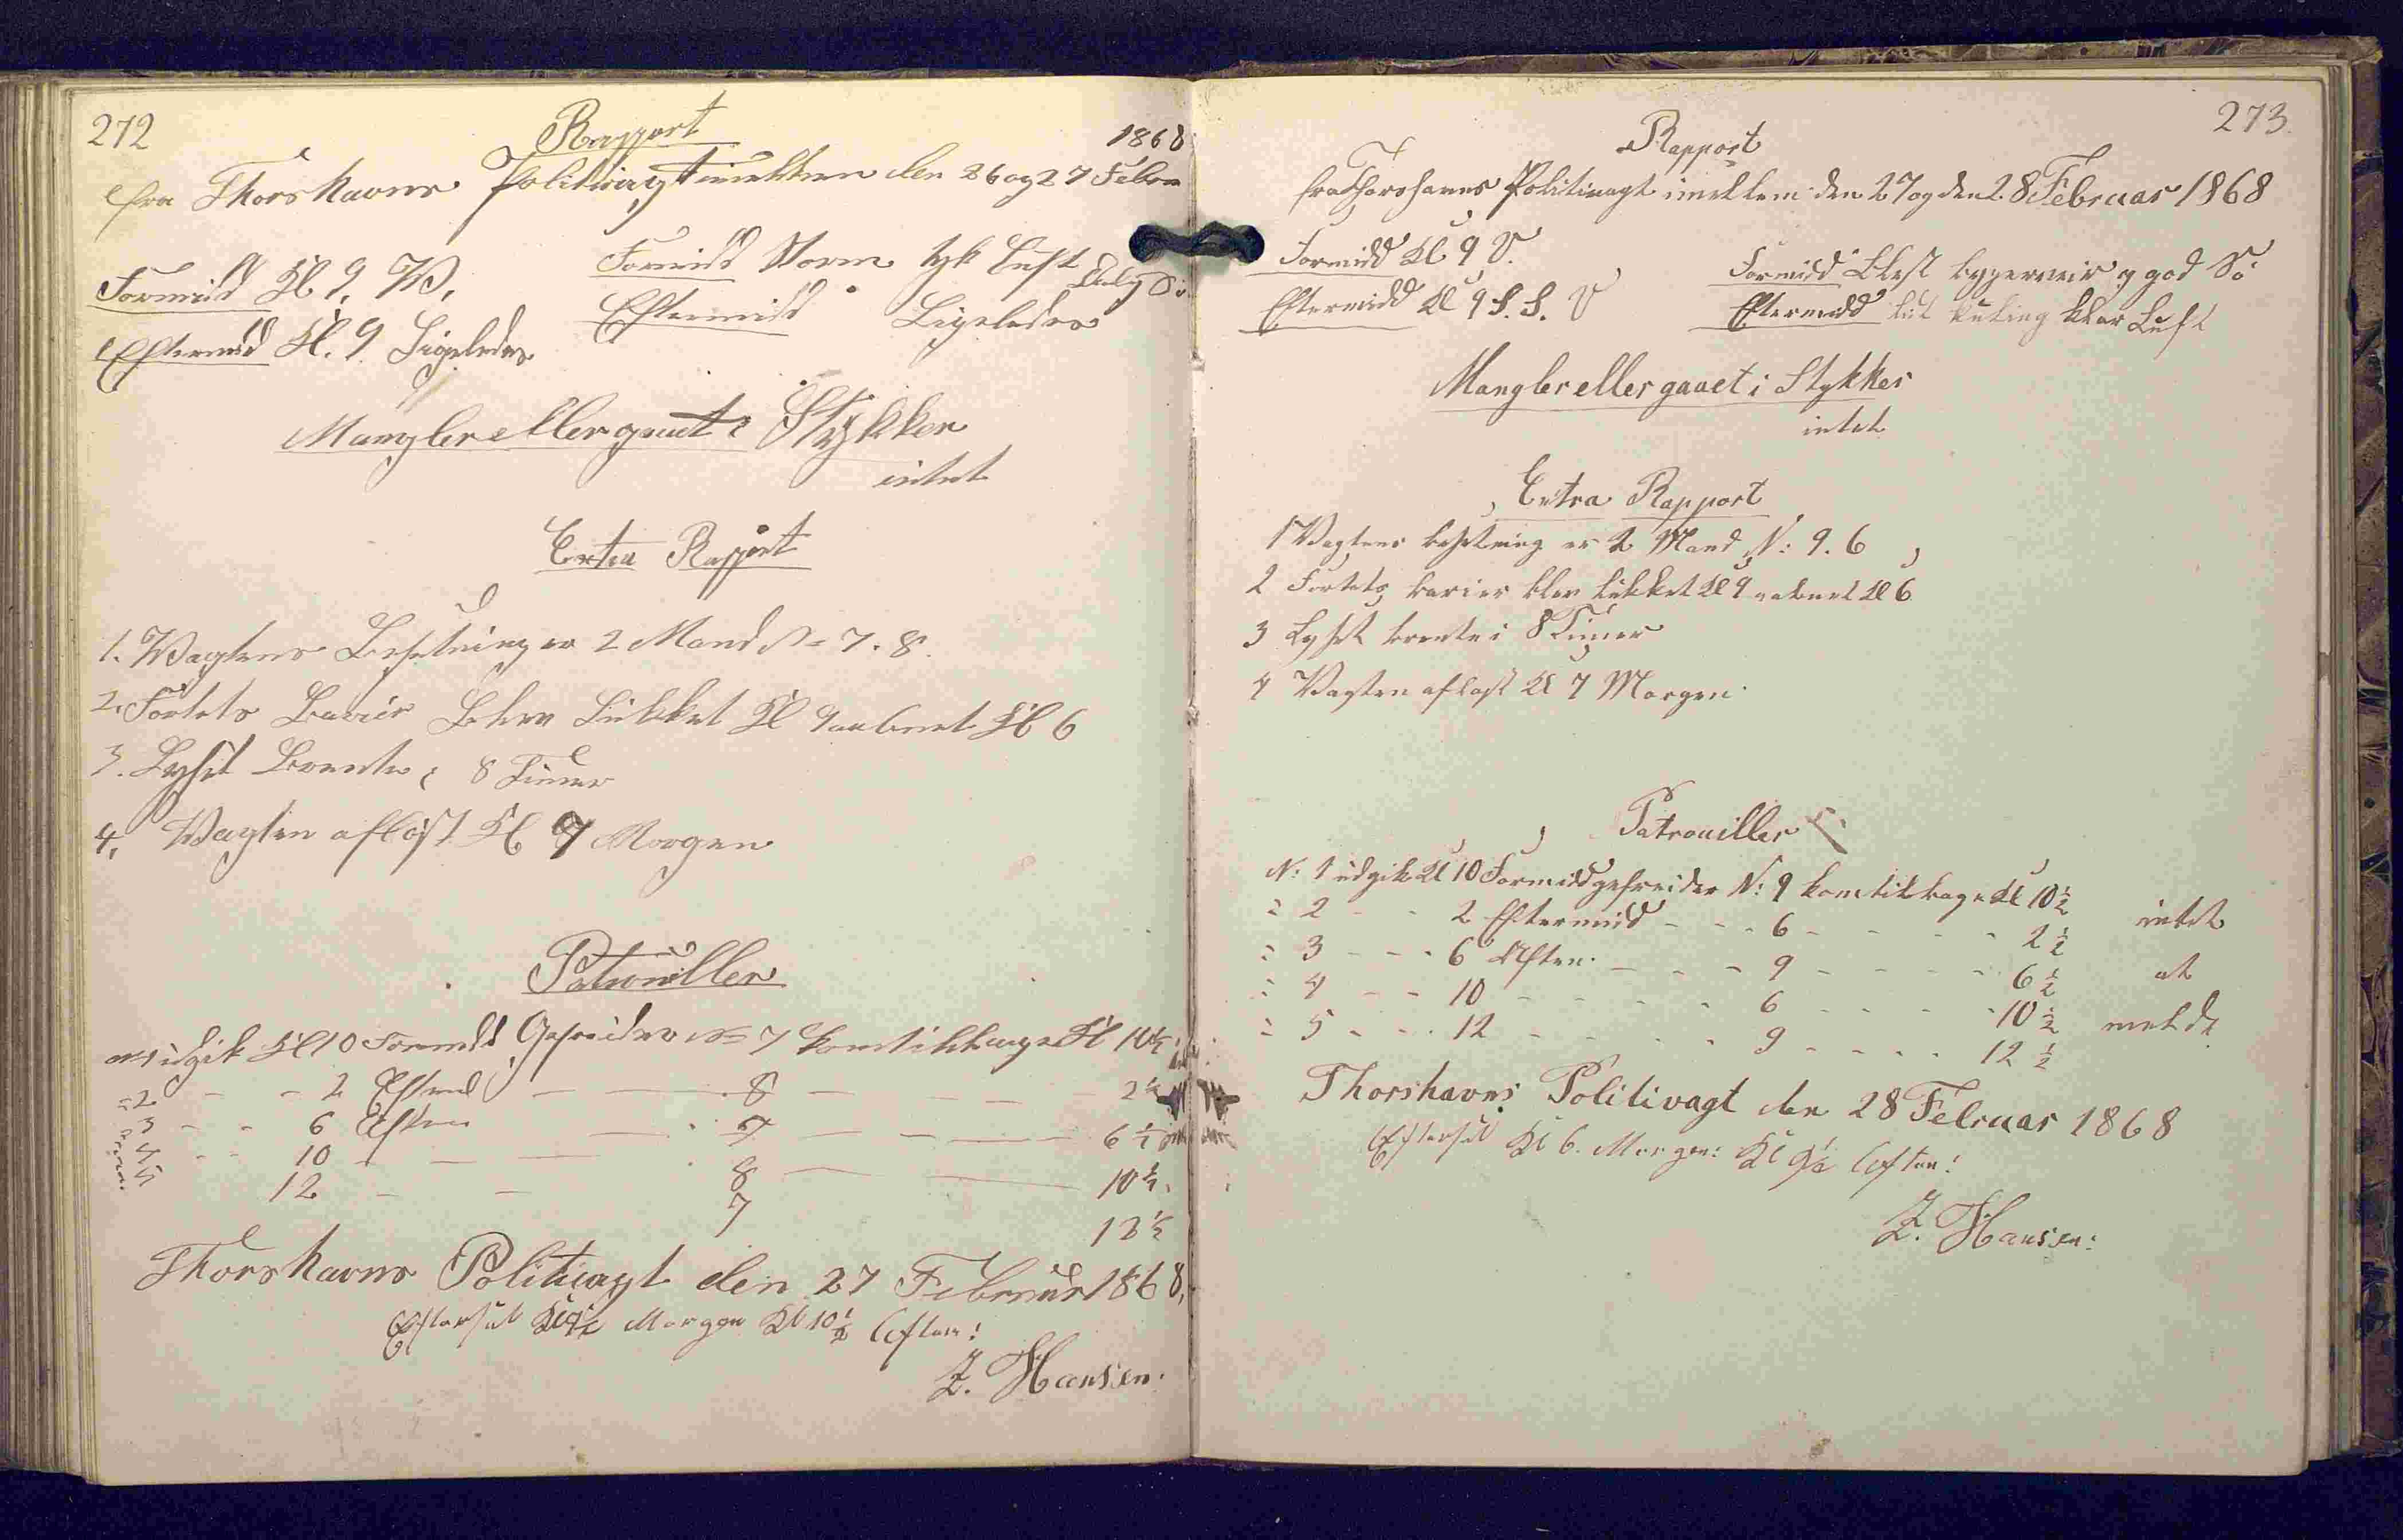 272
Rapport
1868
fra Thorshavns Politivagt imellem den 26 og 27 Februar
Formidd Kl 9. V.
Formidd Storm tyk Luft
Eftermidd Kl. 9 Ligeledes
Eftermidd Ligeledes
Mangler eller gaaet i Stykker
intet
Extra Rapport
1. Vagtens Besetning er 2 Mand No 7. 8.
2. Fortets Barier Blev Lukket Kl 9 aabnet Kl 6
3. Lyset Brente i 8 Timer
4. Vagten afløst Kl 7 Morgen
Patrouiller
No 1 udgik Kl 10 Formidd Gefreider No 7 kom tilbage Kl 10½
" 2 - - 2 Eftmd - - 8 - - - 2½
" 3 - - 6 Aften - - 7 - - - 6½
" 4 - - 10 - - - 8 - - 10½
" 5 12 - - 7 12½
Thorshavns Politivagt den 27 Februar 1868.
Efterseet Kl Morgen Kl 10½ Aften!
Z. Hansen.
273.
Rapport
fra Thorshavns Politivagt imellem den 27 og den 28 Februar 1868
Formidd Kl 9 V.
Formidd Blest byger veir og god Sö
Eftermidd Kl 9 S. S. V
Eftermidd lit kuling klar Luft
Mangler eller gaaet i Stykker
intet
Extra Rapport
1 Vagtens besetning er 2 Mand N: 9. 6
2 Fortets barier blev lukket Kl 9 aabnet Kl 6
3 Lyset brente i 8 Timer
4 Vagten afløst Kl 7 Morgen.
Patrouiller
N: 1 udgik Kl 10 Formidd gefreider N: 9 kom tilbage Kl 10½ intet
" 2 - - 2 Eftermidd - - - 6 - - - - 2½
" 3 - - - 6 Aften. - - - 9 - - - - 6½ at
" 4 - - 10 - - - - 6 - - - 10½
" 5 - - - 12 - - - - 9 - - - - 12½ melde
Thorshavns Politivagt den 28 Februar 1868
Efterseet Kl 6. Morgen: Kl 9½ Aften!
Z. Hansen: